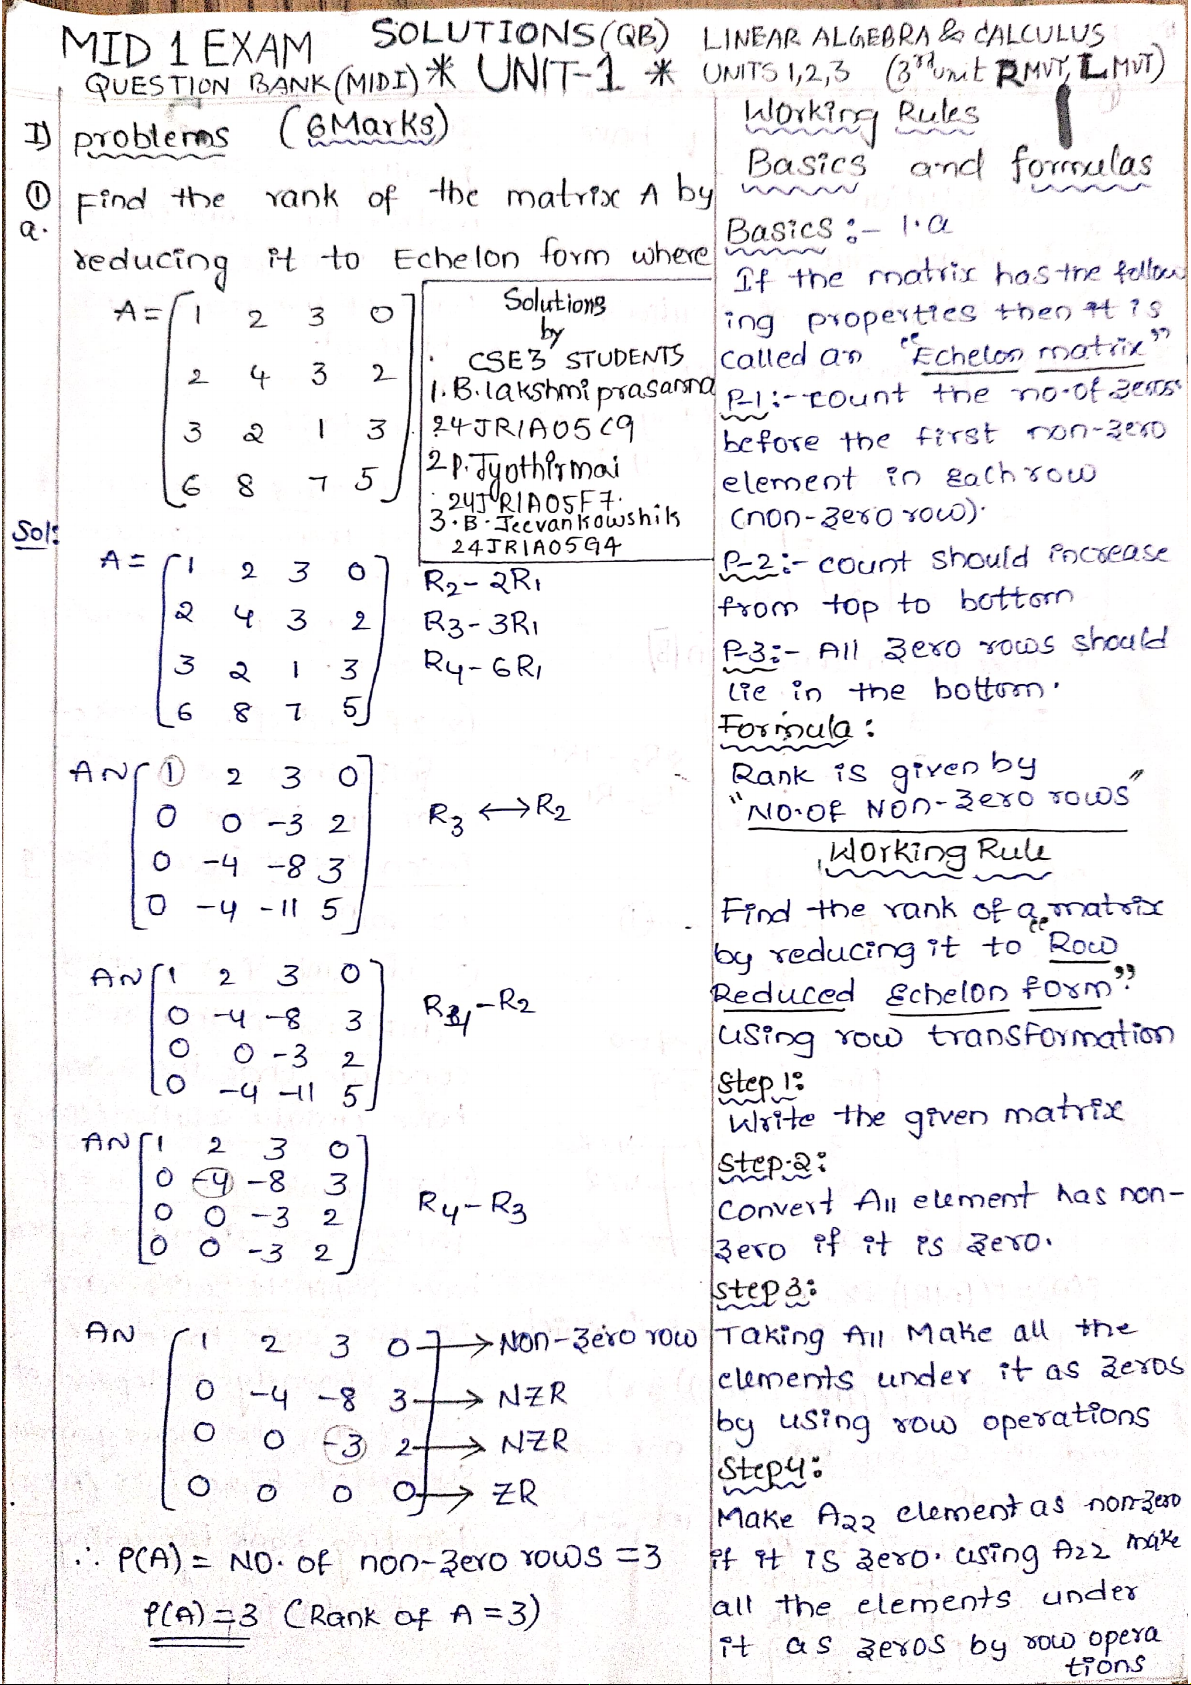 MID 1 EXAM SOLUTIONS (QB) LINEAR ALGEBRA & CALCULUS
QUESTION BANK (MID I) * UNIT-1 * UNITS 1,2,3 (3rd unit RMVT, LMVT)
I) problems (6Marks)
① a. Find the rank of the matrix A by
reducing it to Echelon form where
A = [1 2 3 0
2 4 3 2
3 2 1 3
6 8 7 5]
Solutions
by
CSE3 STUDENTS
1. B. lakshmi prasanna
24JR1A05C9
2 P. Jyothirmai
24JR1A05F7.
3. B. Jeevankowshik
24JR1A05G4
Sol:
A = [1 2 3 0] R2-2R1
[2 4 3 2] R3-3R1
[3 2 1 3] R4-6R1
[6 8 7 5]
A~ [1 2 3 0]
[0 0 -3 2] R3 ↔ R2
[0 -4 -8 3]
[0 -4 -11 5]
A~ [1 2 3 0]
[0 -4 -8 3] R4-R2
[0 0 -3 2]
[0 -4 -11 5]
A~ [1 2 3 0]
[0 -4 -8 3] R4-R3
[0 0 -3 2]
[0 0 -3 2]
A~ [1 2 3 0] → Non-zero row
[0 -4 -8 3] → NZR
[0 0 -3 2] → NZR
[0 0 0 0] → ZR
∴ ρ(A) = NO. of non-zero rows = 3
ρ(A) = 3 (Rank of A = 3)
Working Rules
Basics and formulas
Basics :- 1.a
If the matrix has the follow
ing properties then it is
called an "Echelon matrix"
P-1:- count the no.of zeros
before the first non-zero
element in each row
(non-zero row).
P-2:- count should increase
from top to bottom
P-3:- All zero rows should
lie in the bottom.
Formula:
Rank is given by
"NO.OF NON-zero rows"
Working Rule
Find the rank of a matrix
by reducing it to "Row
Reduced Echelon form".
using row transformation
Step 1:
Write the given matrix
Step-2:
Convert A11 element has non-
zero if it is zero.
Step 3:
Taking A11 Make all the
elements under it as zeros
by using row operations
Step4:
Make A22 element as nonzero
if it is zero. using A22 make
all the elements under
it as zeros by row opera
tions